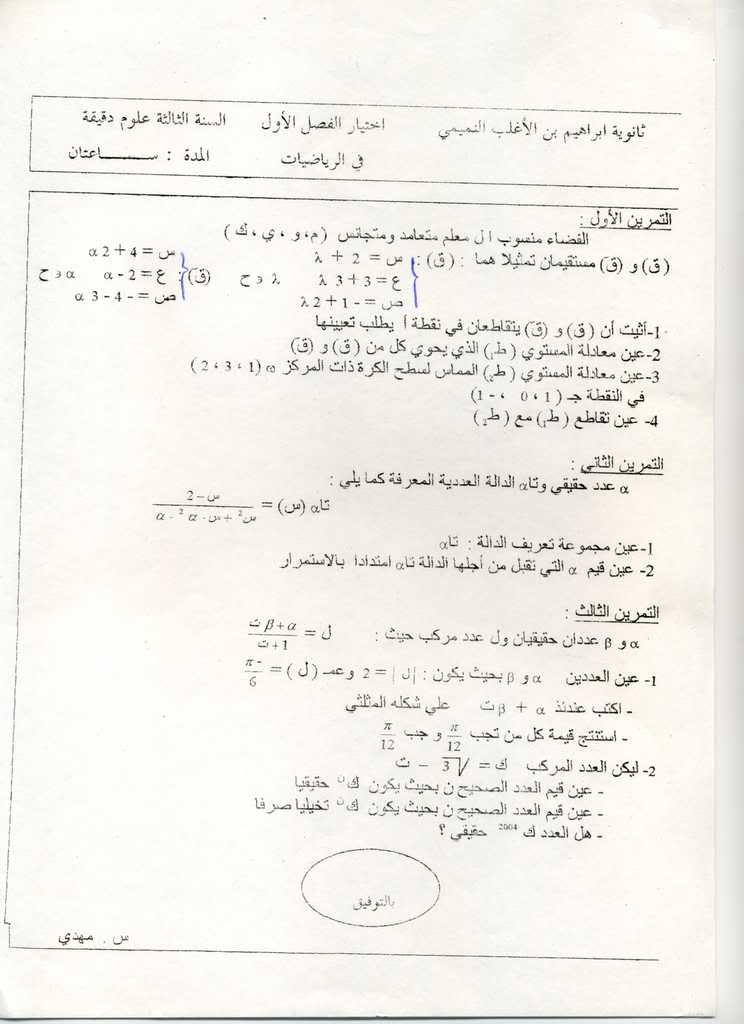 ثانوية ابراهيم بن الأغلب التميمي
اختبار الفصل الأول
السنة الثالثة علوم دقيقة
في الرياضيات
المدة : ســـــــاعتان
التمرين الأول :
الفضاء منسوب ا ل معلم متعامد ومتجانس ( م ، و ، ي ، ك )
( ق ) و ( قَ ) مستقيمان تمثيلا هما : ( ق ) : س = 2 + λ
ع = 3 + 3 λ λ و ح
ص = - 1 + 2 λ
( قَ ) : س = 4 + 2 α
ع = 2 - α α و ح
ص = - 4 - 3 α
1- أثبت أن ( ق ) و ( قَ ) يتقاطعان في نقطة أ يطلب تعيينها
2- عين معادلة المستوي ( ط₁ ) الذي يحوي كل من ( ق ) و ( قَ )
3- عين معادلة المستوي ( ط₂ ) المماس لسطح الكرة ذات المركز ω ( 1 ، 3 ، 2 )
في النقطة جـ ( 1 ، 0 ، - 1 )
4- عين تقاطع ( ط₁ ) مع ( ط₂ )
التمرين الثاني :
α عدد حقيقي وتاα الدالة العددية المعرفة كما يلي :
تاα (س) = (س - 2) / (س² + س - α² - α)
1- عين مجموعة تعريف الدالة : تاα
2- عين قيم α التي تقبل من أجلها الدالة تاα امتدادا بالاستمرار
التمرين الثالث :
α و β عددان حقيقيان ول عدد مركب حيث : ل = (α + β ت) / (1 + ت)
1- عين العددين α و β بحيث يكون : | ل | = 2 وعمـ ( ل ) = -π / 6
- اكتب عندئذ α + β ت علي شكله المثلثي
- استنتج قيمة كل من تجب π/12 و جب π/12
2- ليكن العدد المركب ك = √3 - ت
- عين قيم العدد الصحيح ن بحيث يكون كⁿ حقيقيا
- عين قيم العدد الصحيح ن بحيث يكون كⁿ تخيليا صرفا
- هل العدد ك ²⁰⁰⁴ حقيقي ؟
بالتوفيق
س . مهدي